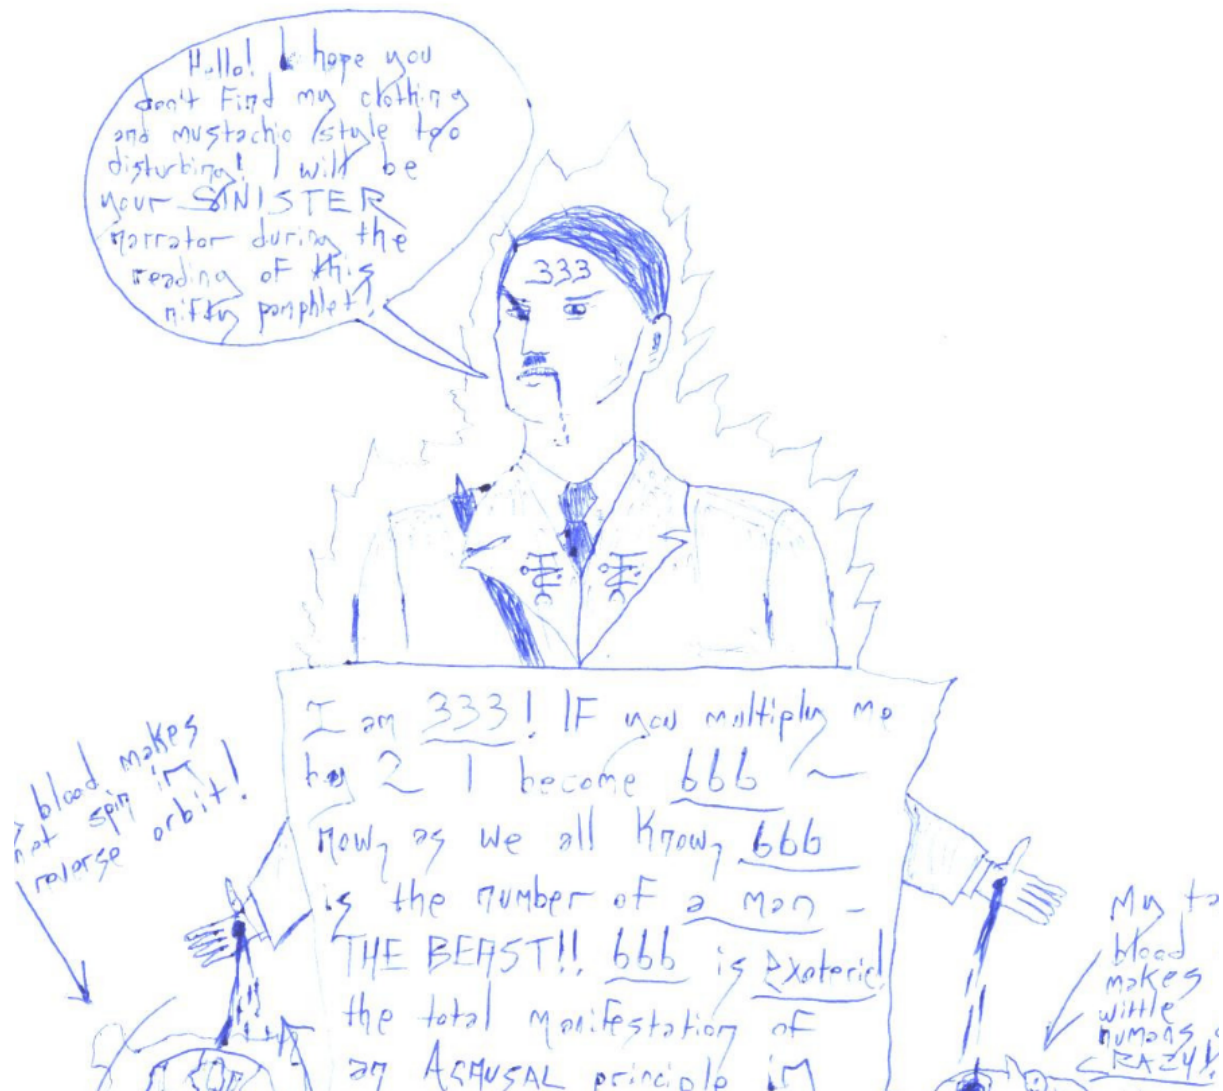 Hello! I hope you
don't find my clothing
and mustachio style too
disturbing! I will be
your SINISTER
narrator during the
reading of this
nifty pamphlet!
333
I am 333! IF you multiply me
by 2 I become 666 ~
now, as we all know, 666
is the number of a man -
THE BEAST!! 666 is exoteric!
the total manifestation of
an ACAUSAL principle in
blood makes
spin in
reverse orbit!
My
blood
makes
wittle
humans
CRAZY!